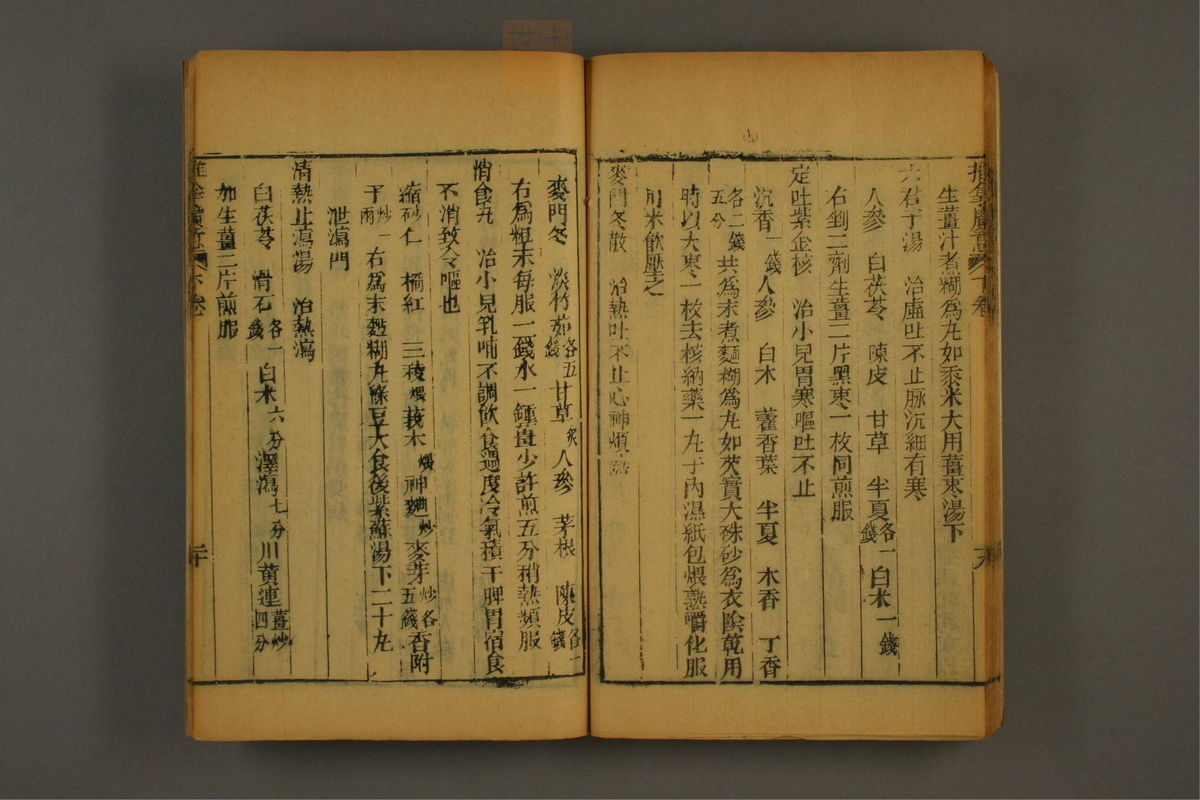 推拿廣意 下卷
生薑汁煮糊爲丸如黍米大用薑棗湯下
六君子湯　治虛吐不止脉沉細有寒
人參　白茯苓　陳皮　甘草　半夏各一錢　白木一錢
右剉二劑生薑二片黑棗一枚同煎服
定吐紫金核　治小兒胃寒嘔吐不止
沉香一錢　人參　白木　藿香葉　半夏　木香　丁香
各二錢五分　共爲末煮麵糊爲丸如芡實大硃砂爲衣陰乾用
時以大棗一枚去核納藥一丸于內濕紙包煨熟嚼化服
用米飲壓之
麥門冬散　治熱吐不止心神煩熱
麥門冬　淡竹茹各五錢　甘草炙　人參　茅根　陳皮各一錢
右爲粗末每服二錢水一鍾薑少許煎五分稍熱頻服
消食丸　治小兒乳哺不調飲食過度冷氣積于脾胃宿食
不消致令嘔也
縮砂仁炒　橘紅　三稜煨　莪木煨　神麯炒　麥芽炒各五錢　香附
子炒一兩　右爲末麪糊丸綠豆大食後紫蘇湯下二十丸
泄瀉門
清熱止瀉湯　治熱瀉
白茯苓　滑石各一錢　白木六分　澤瀉七分　川黃連薑炒四分
加生薑二片煎服
推拿廣意 下卷 二十